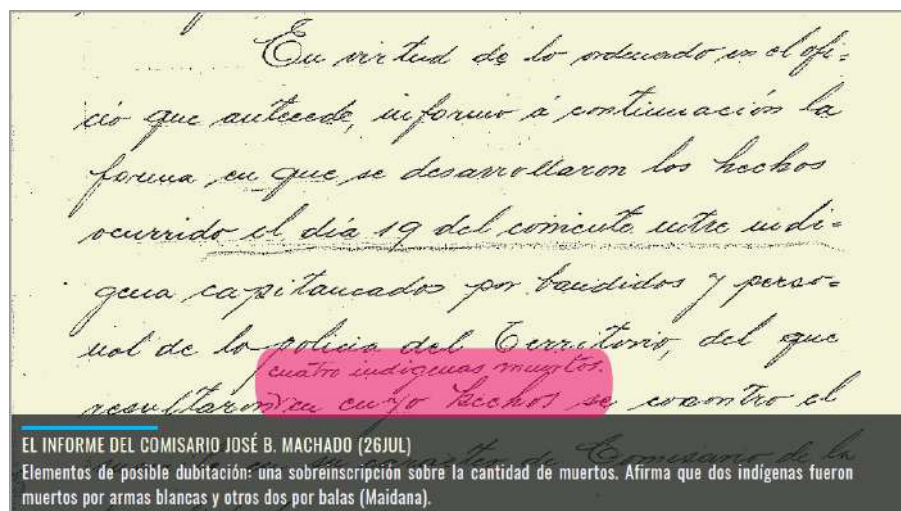 En virtud de lo ordenado en el ofi=
cio que antecede, informo á continuación la
forma en que se desarrollaron los hechos
ocurrido el día 19 del corriente entre indi=
gena capitaneados por bandidos y perso=
nal de la policia del Territorio, del que
cuatro indigenas muertos.
resultaron en cuyo hechos se encontro el
de Comisario de la
EL INFORME DEL COMISARIO JOSÉ B. MACHADO (26JUL)
Elementos de posible dubitación: una sobreinscripción sobre la cantidad de muertos. Afirma que dos indígenas fueron
muertos por armas blancas y otros dos por balas (Maidana).